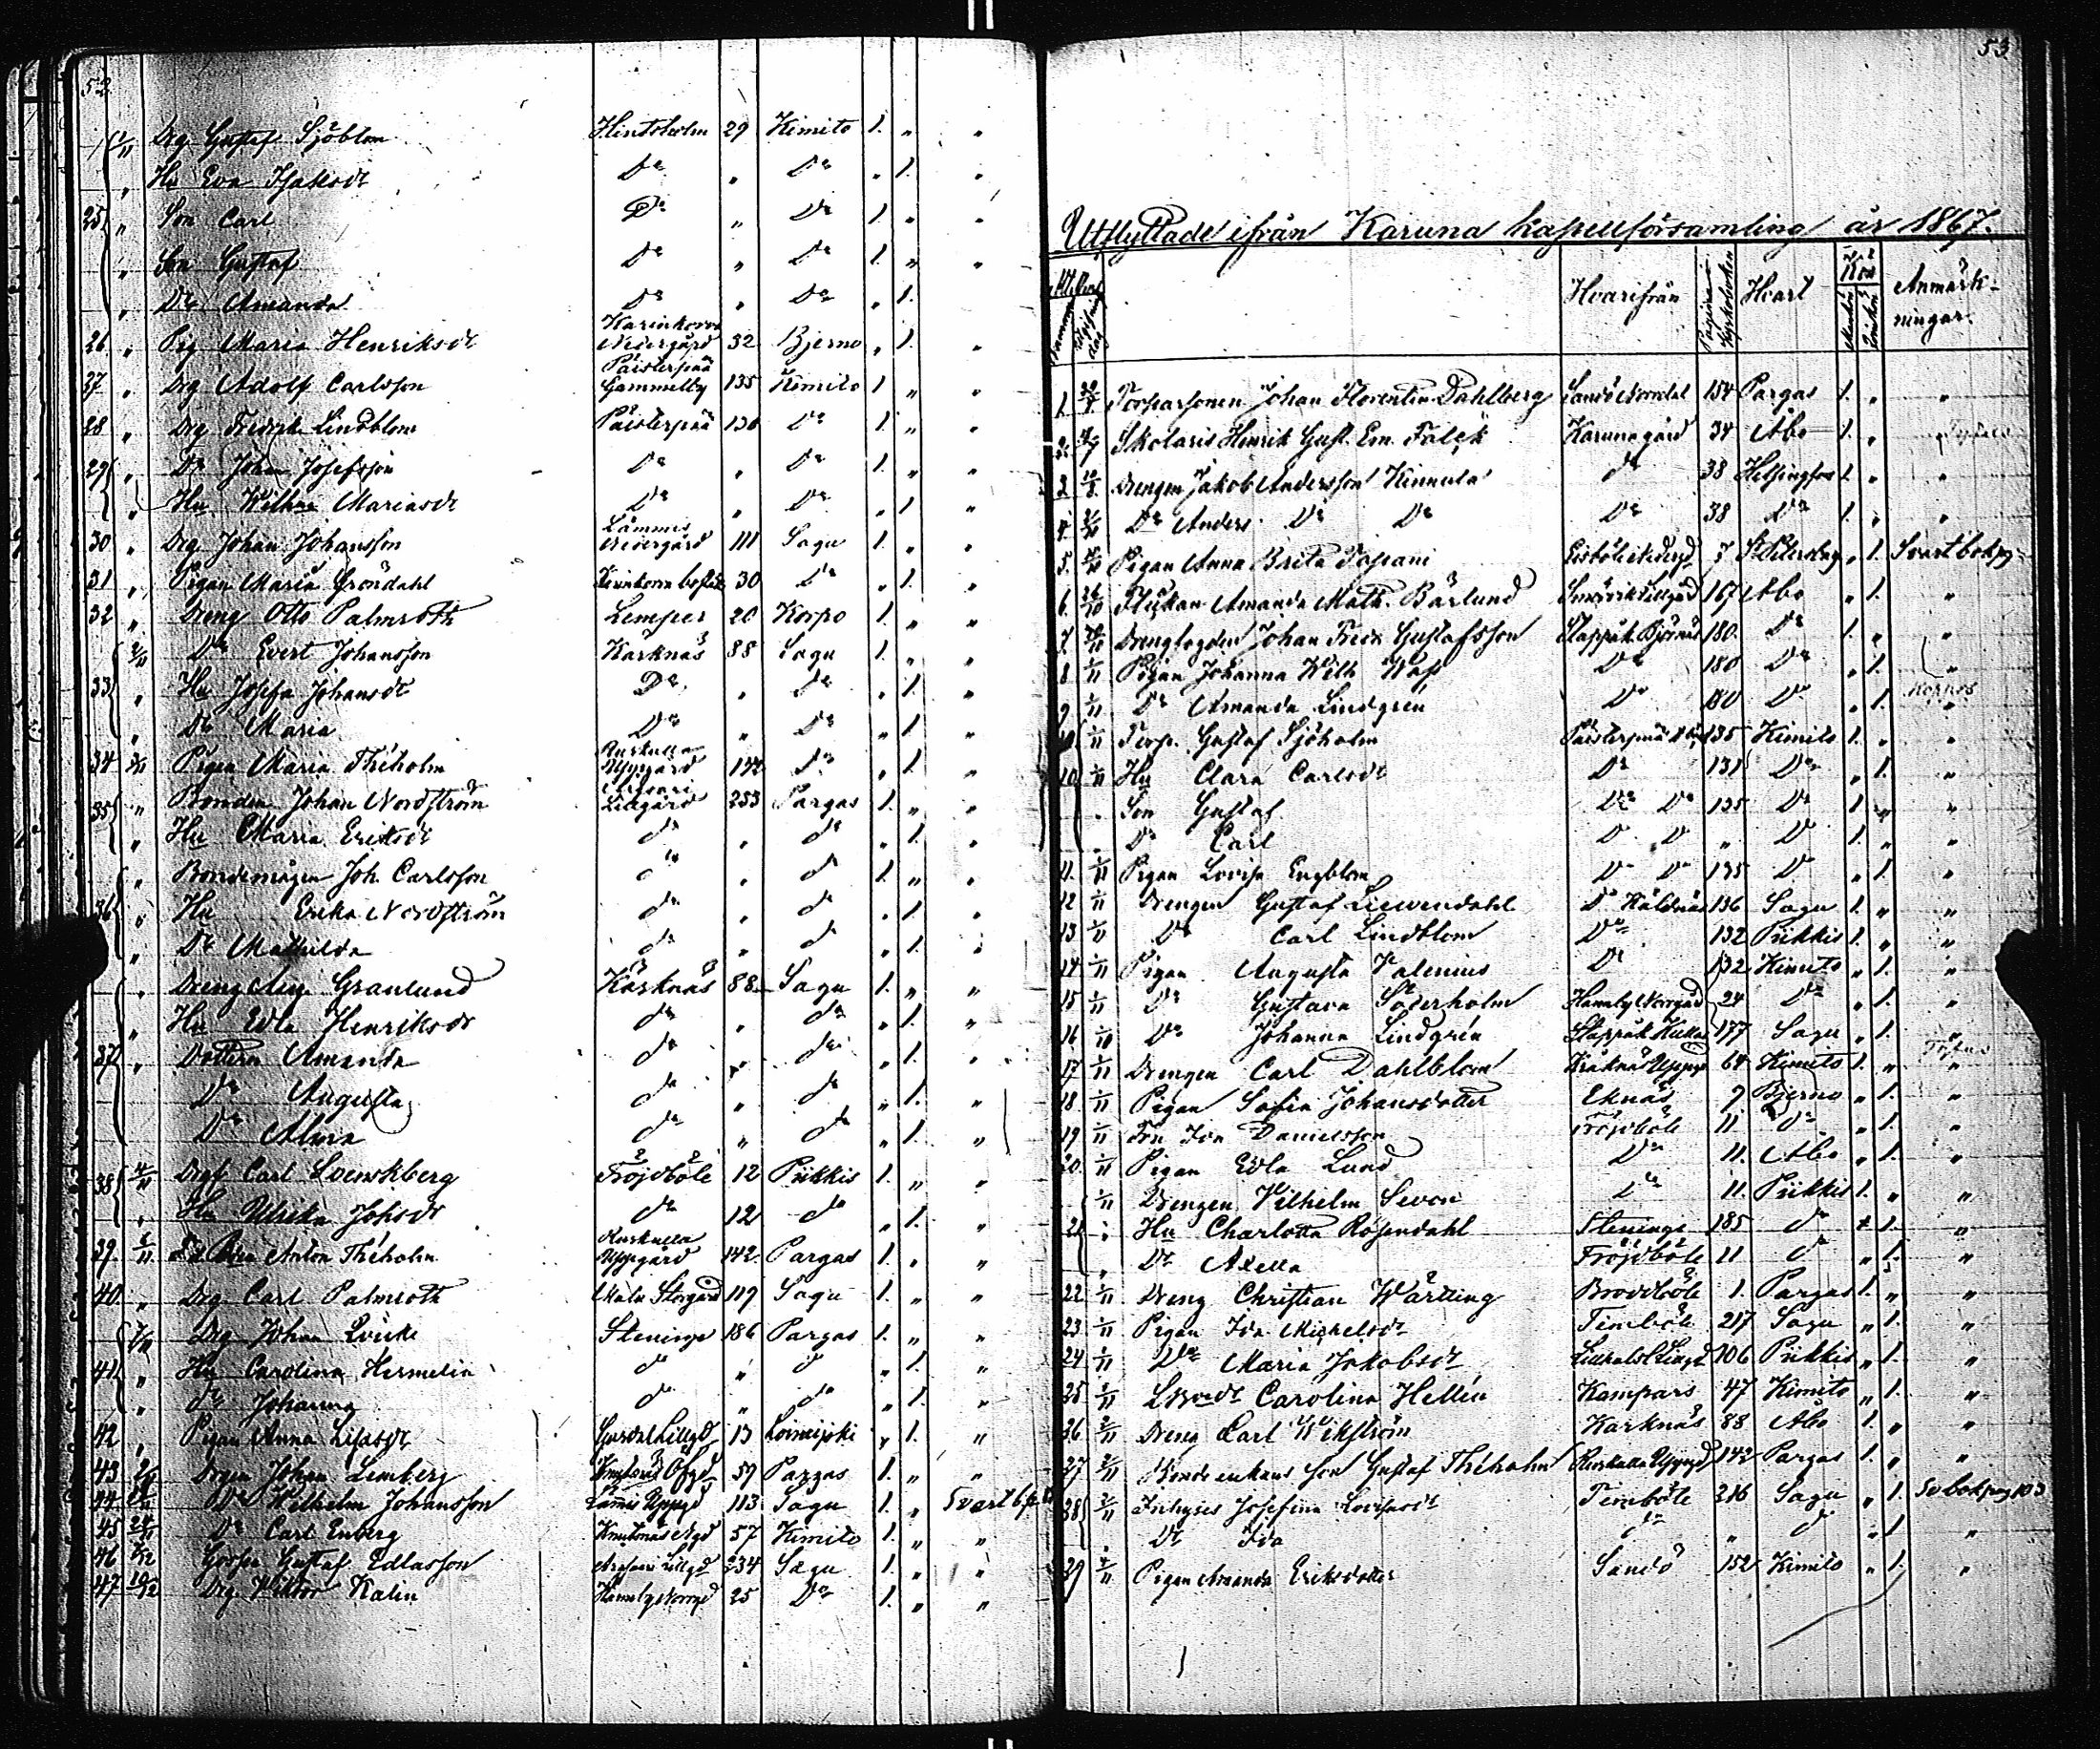 52
1/11 Drg Gustaf Sjöblom Hintsholm 29 Kimito 1. " "
" Hu Eva Isaksdr Do " Do " 1. "
25 " Son Carl Do " Do 1 " "
" Son Gustaf Do " Do 1 " "
" Dr Amanda Do " Do " 1. "
26 " Pig Maria Henriksdr Nedergård 32 Bjerno " 1. "
27 " Drg Adolf Carlsson Päisterpää Gammelby 135 Kimito 1 " "
28 " Drg Fredrik Lindblom Päisterpää 130 Do 1 " "
29 " Do Johan Josefsson Do " Do 1 " "
" Hu Wilhna Mariasdr Do " Do " 1 "
30 " Drg Johan Johansson Lämmis Nedergård 111 Sagu 1. " "
31 " Pigan Maria Gröndahl 30 Do " 1. "
32 " Dreng Otto Palmroth Lemper 20 Korpo 1. " "
2/11 Do Evert Johansson Karknäs 88 Sagu 1. " "
33 " Hu Josefa Johansdr Do " do " 1. "
" Dr Maria Do " Do " 1 "
34 Pigan Maria Théholm Ruskulla Uppgård 142 do " 1 "
35 " Bonden Johan Nordström Lillgård 233 Pargas 1. " "
" Hu Maria Eriksdr do " do " 1. "
" Bondemågen Joh. Carlsson do " do 1. " "
36 " Hu Erika Nordström do " do " 1. "
" Dr Mathilda do " do " 1. "
" Dreng Aug. Granlund Kårknäs 88 Sagu 1. " "
" Hu Edla Henriksdr do " do " 1. "
37 " Dottern Amanda do " do " 1. "
Dr Augusta do " do " 1. "
Dr Alma do " do " 1. "
38 4/11 Drgf Carl Svenskberg Fröjdböle 12 Piikkis 1. " "
" Hu Ulrika Johsdr do 12 do " 1. "
39 Anton Théholm Ruskulla Uppgård 142 Pargas 1. " "
40 " Drg Carl Palmroth Storgård 119 Sagu 1. " "
Drg Johan Steninge 186 Pargas 1. " "
41 " Hu Carolina Hermelin do " do " 1. "
" dr Johanna do " do " 1. "
42 " Pigan Anna Lisasdr 13 Loimijoki " 1. "
43 Drgen Johan Lemberg 59 Pargas 1. " "
44 Do Wilhelm Johansson Lämmis Uppgd 113 Sagu 1. " Svartb
45 24/11 Do Carl Enberg Knutnäs Ngd 57 Kimito 1. " "
46 Gossen Gustaf Edlasson Lillgd 234 Sagu 1. " "
47 Drg Wiktor Kalin Hämmby Norrgd 25 Do 1. " "
53
Utflyttade ifrån Karuna kapellförsamling år 1867.
Hvarifrån Hvart Kön Anmärkningar.
1. Torparsonen Johan Florentin Dahlberg Sandö Norrdal 154 Pargas 1. " "
2. Skolaris Henrik Gust. Em. Falck Karunagård 34 Åbo 1. "
3 Drengen Jakob Andersson Kinnula do 38 Helsingfors 1. " "
4. Do Anders Do Do Do 38 Do 1. " "
5. Pigan Anna Brita 7 St Petersburg " 1. Svartbok pg
6. Flickan Amanda Math. Bärlund Lillgård 167 Åbo " 1. "
7. Drengfogden Johan Fredr Gustafsson Stappåk Björnäs 180. Do 1. " "
8 1/11 Pigan Johanna Wilh Do 180 Do " 1. "
9 1/11 Do Amanda Lindgrén Do 180 Do " 1. "
1/11 Torp. Gustaf Sjöholm Päisterpää 135 Kimito 1. " "
10. 1/11 Hu Clara Carlsdr Do 131 Do " 1. "
Son Gustaf Do Do 135 Do 1. " "
Do Carl Do Do " Do 1. " "
11. 1/11 Pigan Lovisa Engblom Do Do 135 Do " 1. "
12 1/11 Drengen Gustaf Liewendahl Do 136 Sagu 1. " "
13 1/11 Do Carl Lindblom Do 132 Piikkis 1. " "
14 1/11 Pigan Augusta Valenius Do 132 Kimito " 1. "
15 1/11 Do Gustava Söderholm Hämmby Norrgård 24 Do " 1. "
16 Do Johanna Lindgrén Stappåk 177 Sagu " 1. "
17 1/11 Drengen Carl Dahlblom 64 Kimito 1. " "
18. 1/11 Pigan Sofia Johansdotter Eknäs 9 Bjerno " 1. "
19 1/11 Frn Ida Danielsson Fröjdböle 11 Do " 1. "
20. 1/11 Pigan Edla Lund Do 11. Åbo " 1. "
1/11 Drengen Wilhelm Sevon Do 11. Piikkis 1. " "
21 " Hu Charlotta Rosendahl Steninge 185 do " 1. "
" Dr Axella Fröjdböle 11 do " 1. "
22 1/11 Dreng Christian Wärling Broddböle 1. Pargas 1. " "
23 1/11 Pigan Ida Michelsdr Timböle 217 Sagu " 1. "
24 1/11 Do Maria Jakobsdr 106 Piikkis " 1. "
25 Carolina Hellén Kampars 47 Kimito " 1. "
26 2/11 Dreng Carl Wikström Karknäs 88 Åbo 1. " "
27 2/11 Bonde enkans son Gustaf Théholm Ruskulla Uppgd 142 Pargas 1. " "
28 2/11 Inhyses Josefina Lovisasdr Timböle 216 Sagu " 1. Sv bok pag 103
" Dr Ida do " do " 1. "
29 Pigan Amanda Eriksdotter Sandö 152 Kimito " 1. "